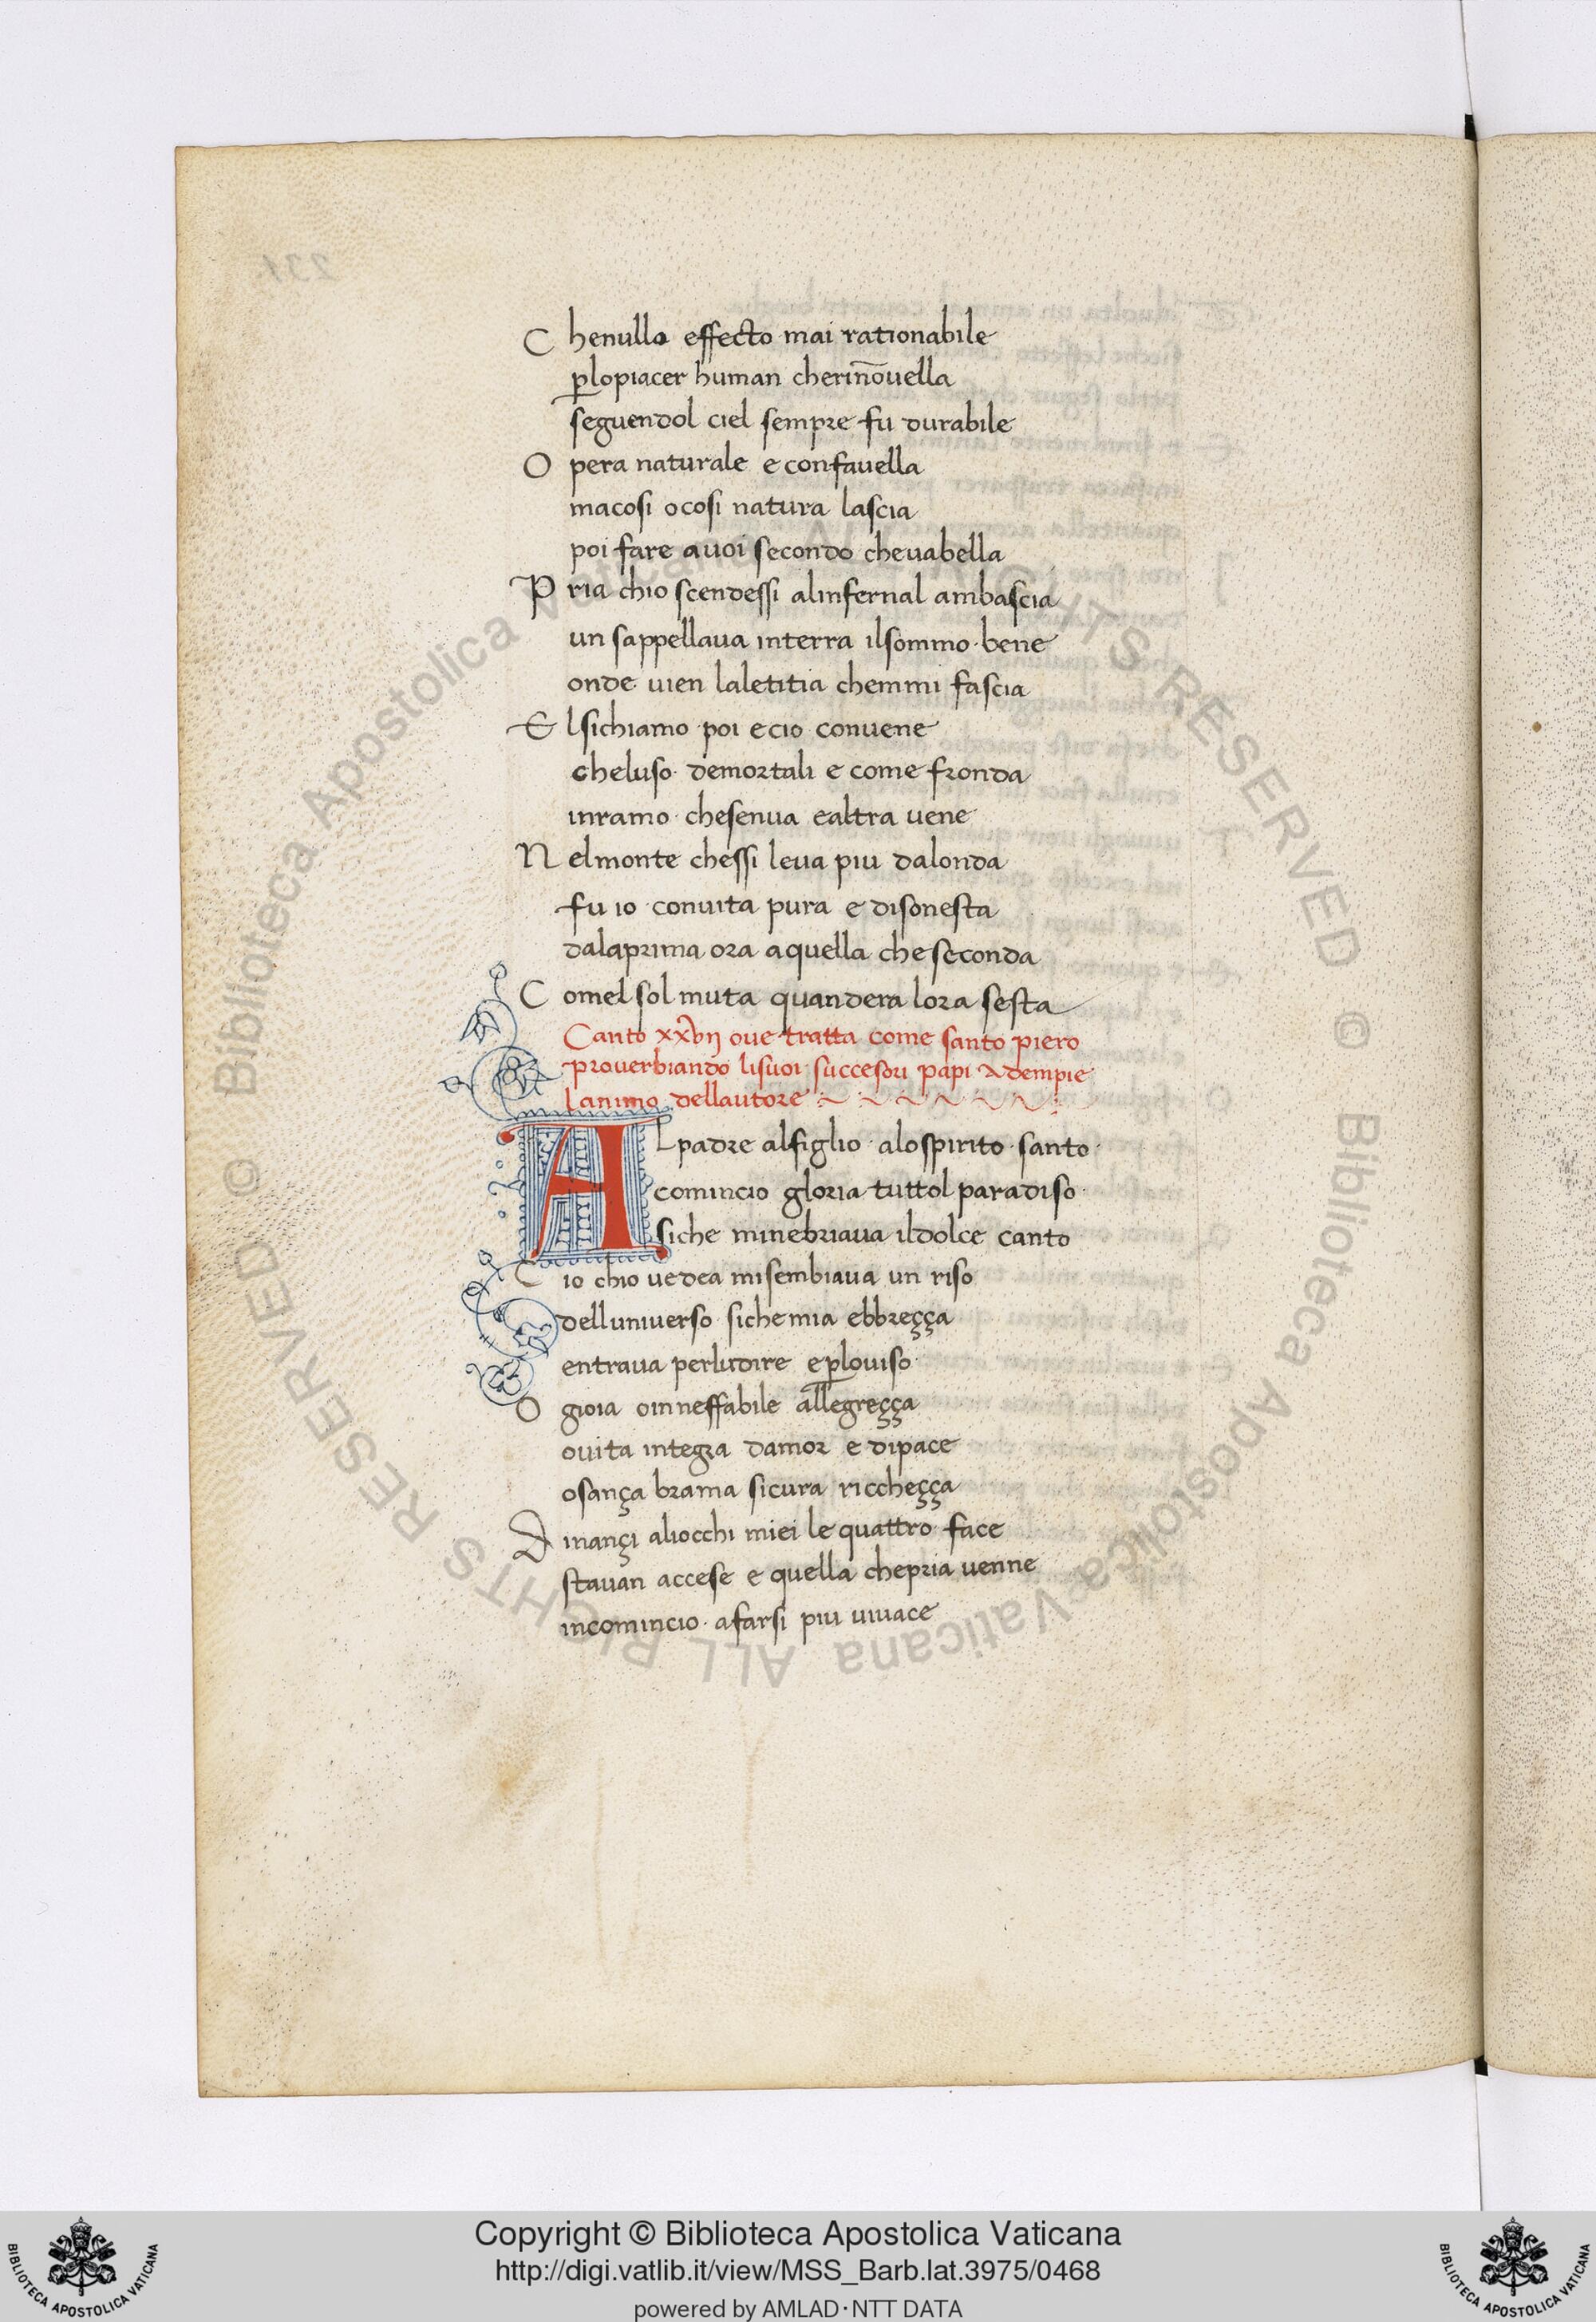 C henullo effecto mai rationabile
p̲lopiacer human cherin̄ouella
seguendol ciel sempre fu durabile
O pera naturale e confauella
macosi ocosi natura lascia
poi fare auoi secondo cheuabella
P ria chio scendessi alinfernal ambascia
un sappellaua interra ilsommo bene
onde uien laletitia chemmi fascia
E lsichiamo poi ecio conuene
cheluso demortali e come fronda
inramo chesenua ealtra uene
N elmonte chessi leua piu dalonda
fu io conuita pura e disonesta
dalaprima ora aquella cheseconda
C omel sol muta quandera lora sesta
Canto xxvij oue tratta come santo piero
prouerbiando lisuoi succesori papi Adempie
lanimo dellautore
A Lpadre alfiglio alospirito santo
comincio gloria tuttol paradiso
siche minebriaua ildolce canto
C io chio uedea misembiaua un riso
delluniuerso sichemia ebbreçça
entraua perludire ep̲louiso
O gioia oinneffabile allegreçça
ouita integra damor e dipace
osança brama sicura riccheçça
D inançi aliocchi miei le quattro face
stauan accese e quella chepria uenne
incomincio afarsi piu uiuace
231
© Biblioteca Apostolica Vaticana ALL RIGHTS RESERVED © Biblioteca Apostolica Vaticana ALL RIGHTS RESERVED
Copyright © Biblioteca Apostolica Vaticana
http://digi.vatlib.it/view/MSS_Barb.lat.3975/0468
powered by AMLAD·NTT DATA
BIBLIOTECA APOSTOLICA VATICANA
BIBLIOTECA APOSTOLICA VATICANA